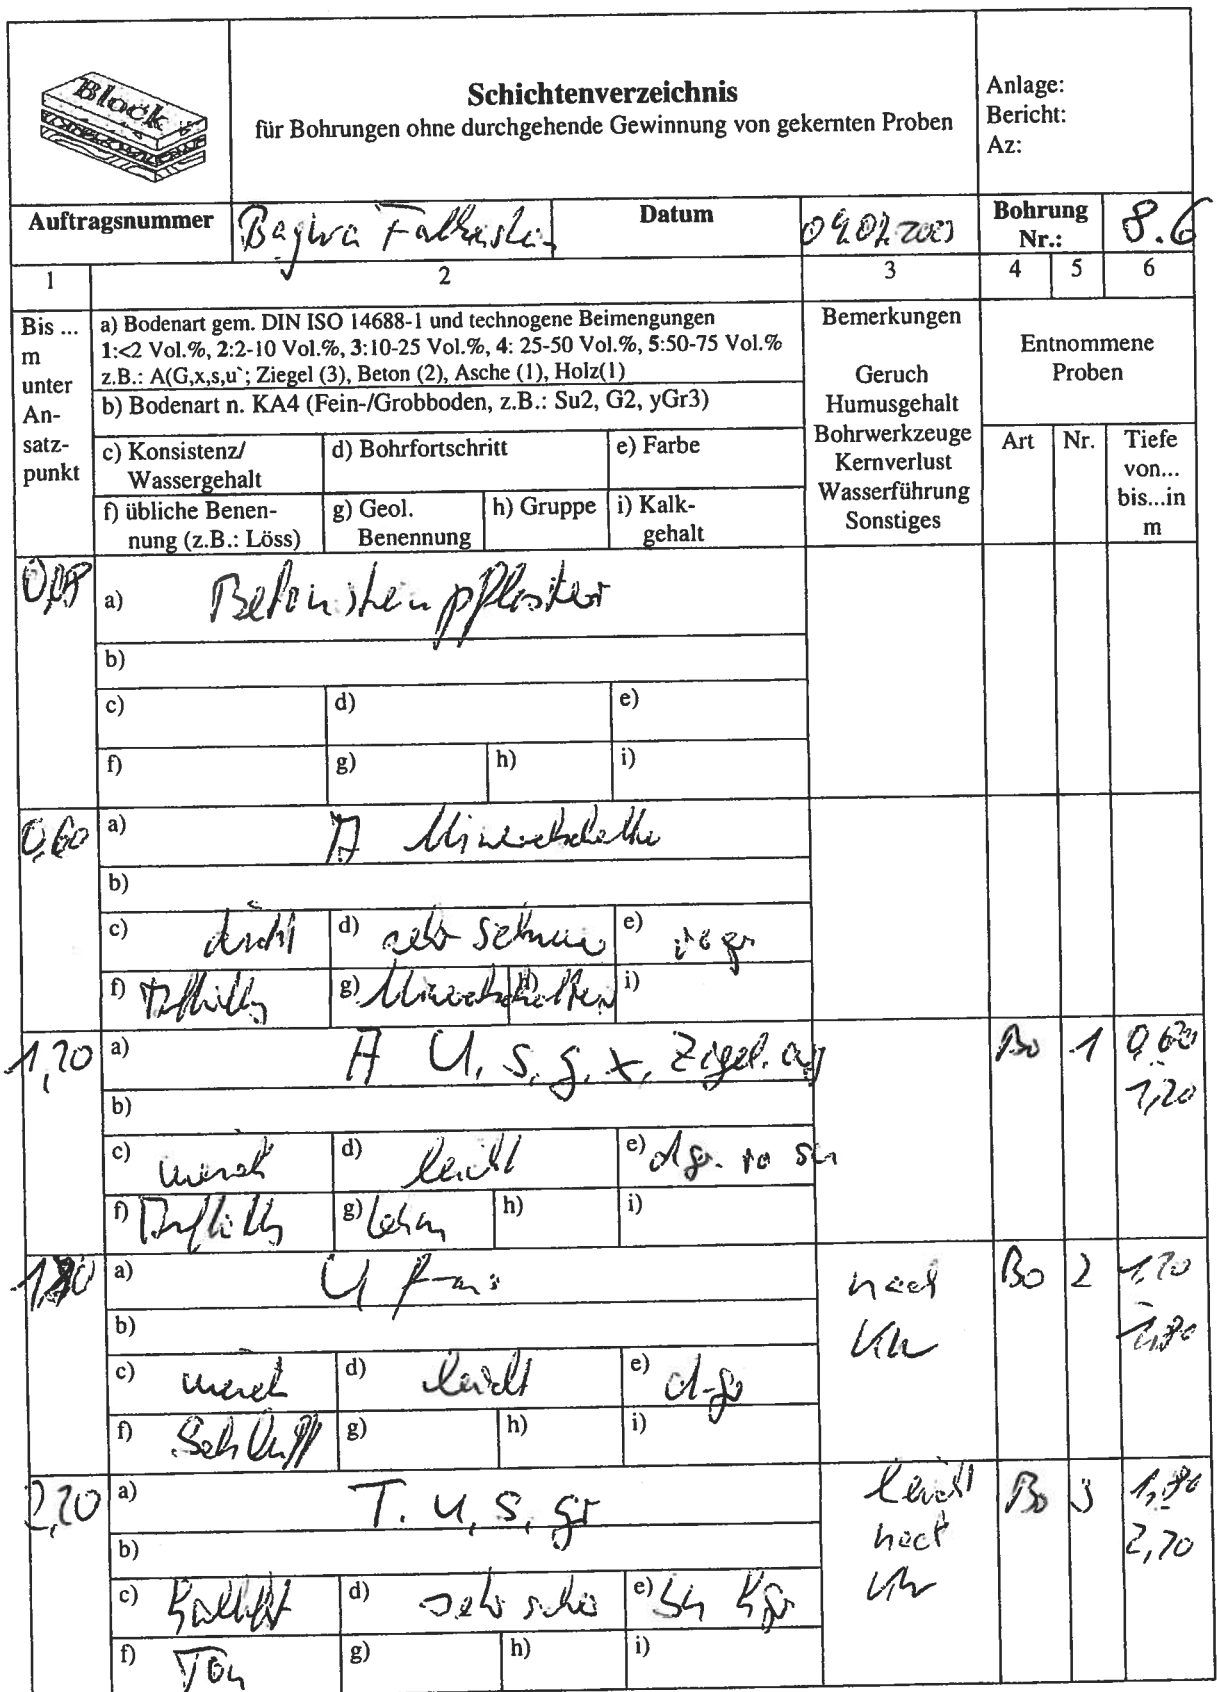 Block
Schichtenverzeichnis
für Bohrungen ohne durchgehende Gewinnung von gekernten Proben
Anlage:
Bericht:
Az:
Auftragsnummer
Datum
Bohrung
Nr.:
8.6
1
2
3
4
5
6
Bis ...
m
unter
An-
satz-
punkt
a) Bodenart gem. DIN ISO 14688-1 und technogene Beimengungen
1:<2 Vol.%, 2:2-10 Vol.%, 3:10-25 Vol.%, 4: 25-50 Vol.%, 5:50-75 Vol.%
z.B.: A(G,x,s,u`; Ziegel (3), Beton (2), Asche (1), Holz(1)
b) Bodenart n. KA4 (Fein-/Grobboden, z.B.: Su2, G2, yGr3)
c) Konsistenz/
Wassergehalt
d) Bohrfortschritt
e) Farbe
f) übliche Benen-
nung (z.B.: Löss)
g) Geol.
Benennung
h) Gruppe
i) Kalk-
gehalt
Bemerkungen
Geruch
Humusgehalt
Bohrwerkzeuge
Kernverlust
Wasserführung
Sonstiges
Entnommene
Proben
Art
Nr.
Tiefe
von...
bis...in
m
a) Betonsteinpflaster
b)
c)
d)
e)
f)
g)
h)
i)
0,60
a) A
b)
c) dicht
d) sehr schwer
e)
f)
g)
h)
i)
1,20
a) A U, s, g, x, Ziegel
b)
c) weich
d) leicht
e)
f)
g) Lehm
h)
i)
Bo 1 0,60
1,20
a) U
b)
c) weich
d) leicht
e) d-gr
f) Schluff
g)
h)
i)
nach
Bo 2 1,20
1,80
a) T, u, s, gr
b)
c) halbfest
d) sehr
e)
f) Ton
g)
h)
i)
leicht
nach
Bo 3 1,80